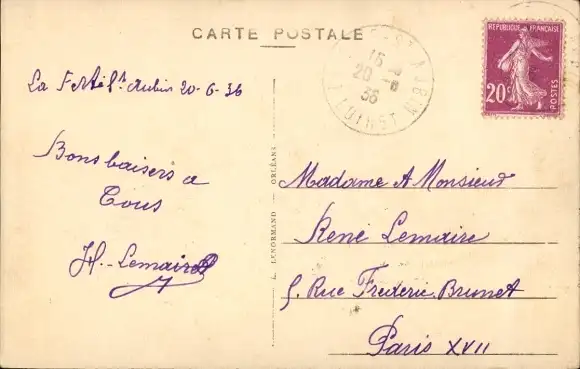 CARTE POSTALE
REPUBLIQUE FRANÇAISE
20c
POSTES
16
20 - 6
36
LOIRET
La Ferté St Aubin 20-6-36
Bons baisers a
Tous
H. Lemaire
L. LENORMAND - ORLÉANS
Madame & Monsieur
René Lemaire
5. Rue Frederic Brunet
Paris XVII